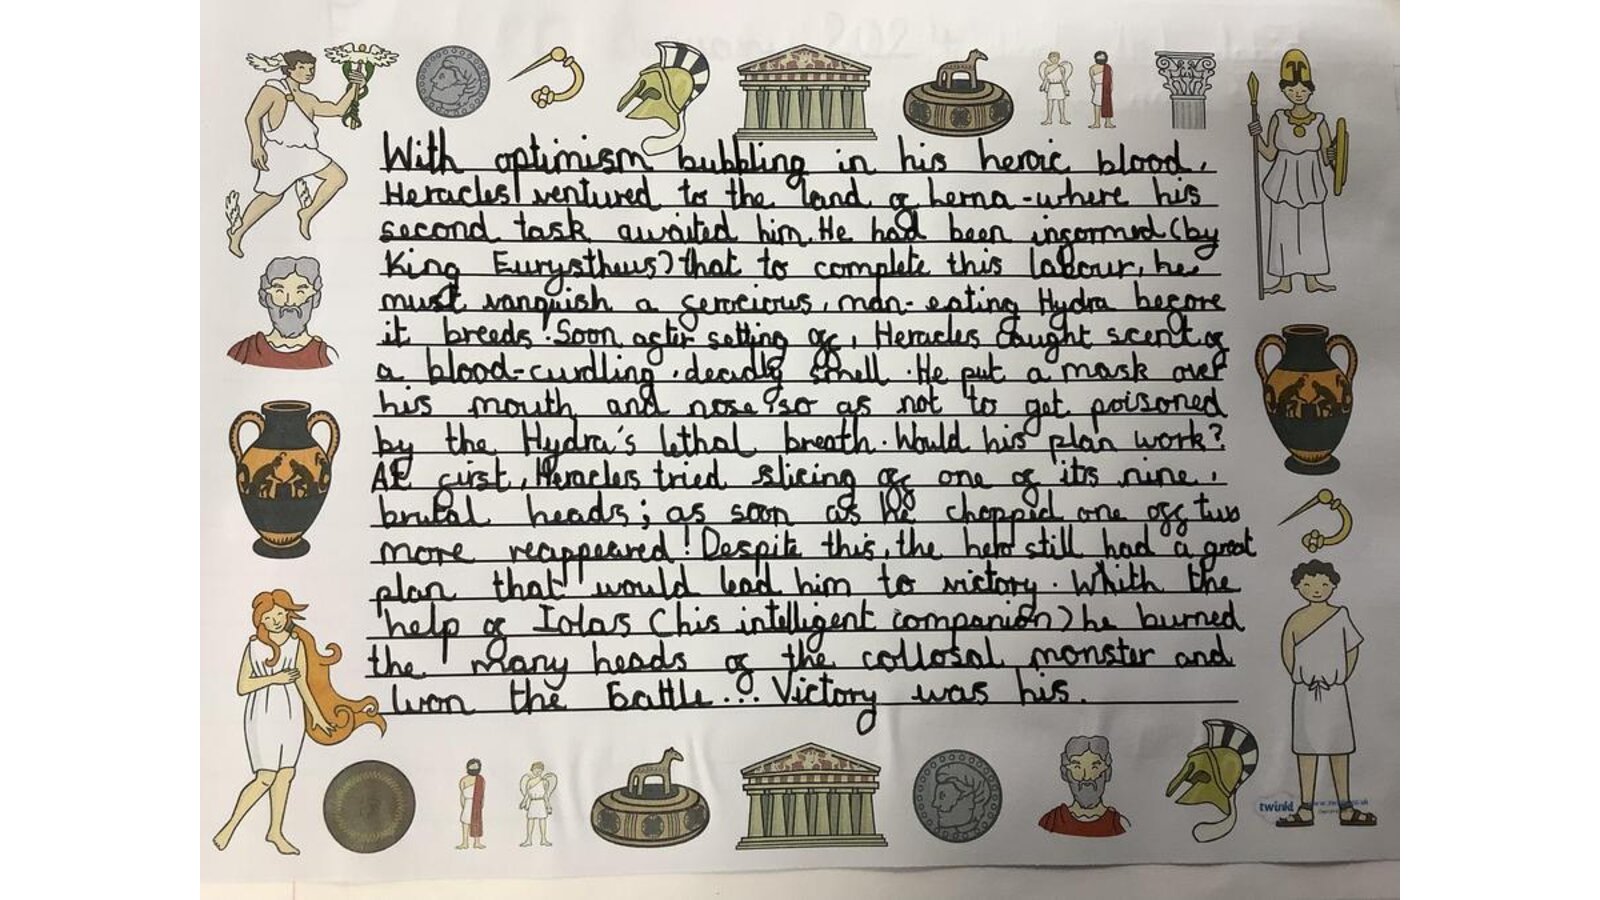 With optimism bubbling in his heroic blood,
Heracles ventured to the land of Lerna - where his
second task awaited him. He had been informed (by
King Eurystheus) that to complete this labour, he
must vanquish a ferocious, man-eating Hydra before
it breeds. Soon after setting off, Heracles caught scent of
a blood-curdling, deadly smell. He put a mask over
his mouth and nose so as not to get poisoned
by the Hydra's lethal breath. Would his plan work?
At first, Heracles tried slicing off one of its nine,
brutal heads; as soon as he chopped one off two
more reappeared! Despite this, the hero still had a great
plan that would lead him to victory. Whith the
help of Iolas (his intelligent companion) he burned
the many heads of the collosal monster and
won the battle... Victory was his.
twinkl